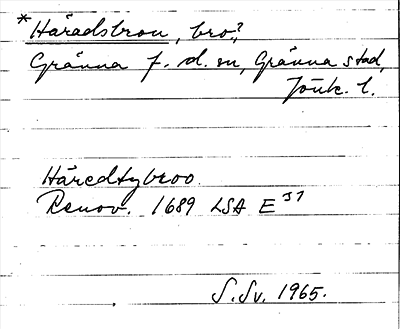 * Häradsbron, bro?
Gränna f. d. sn, Gränna stad,
Jönk. l.
Häredtybroo.
Renov. 1689 LSA E 31
S. Sv. 1965.